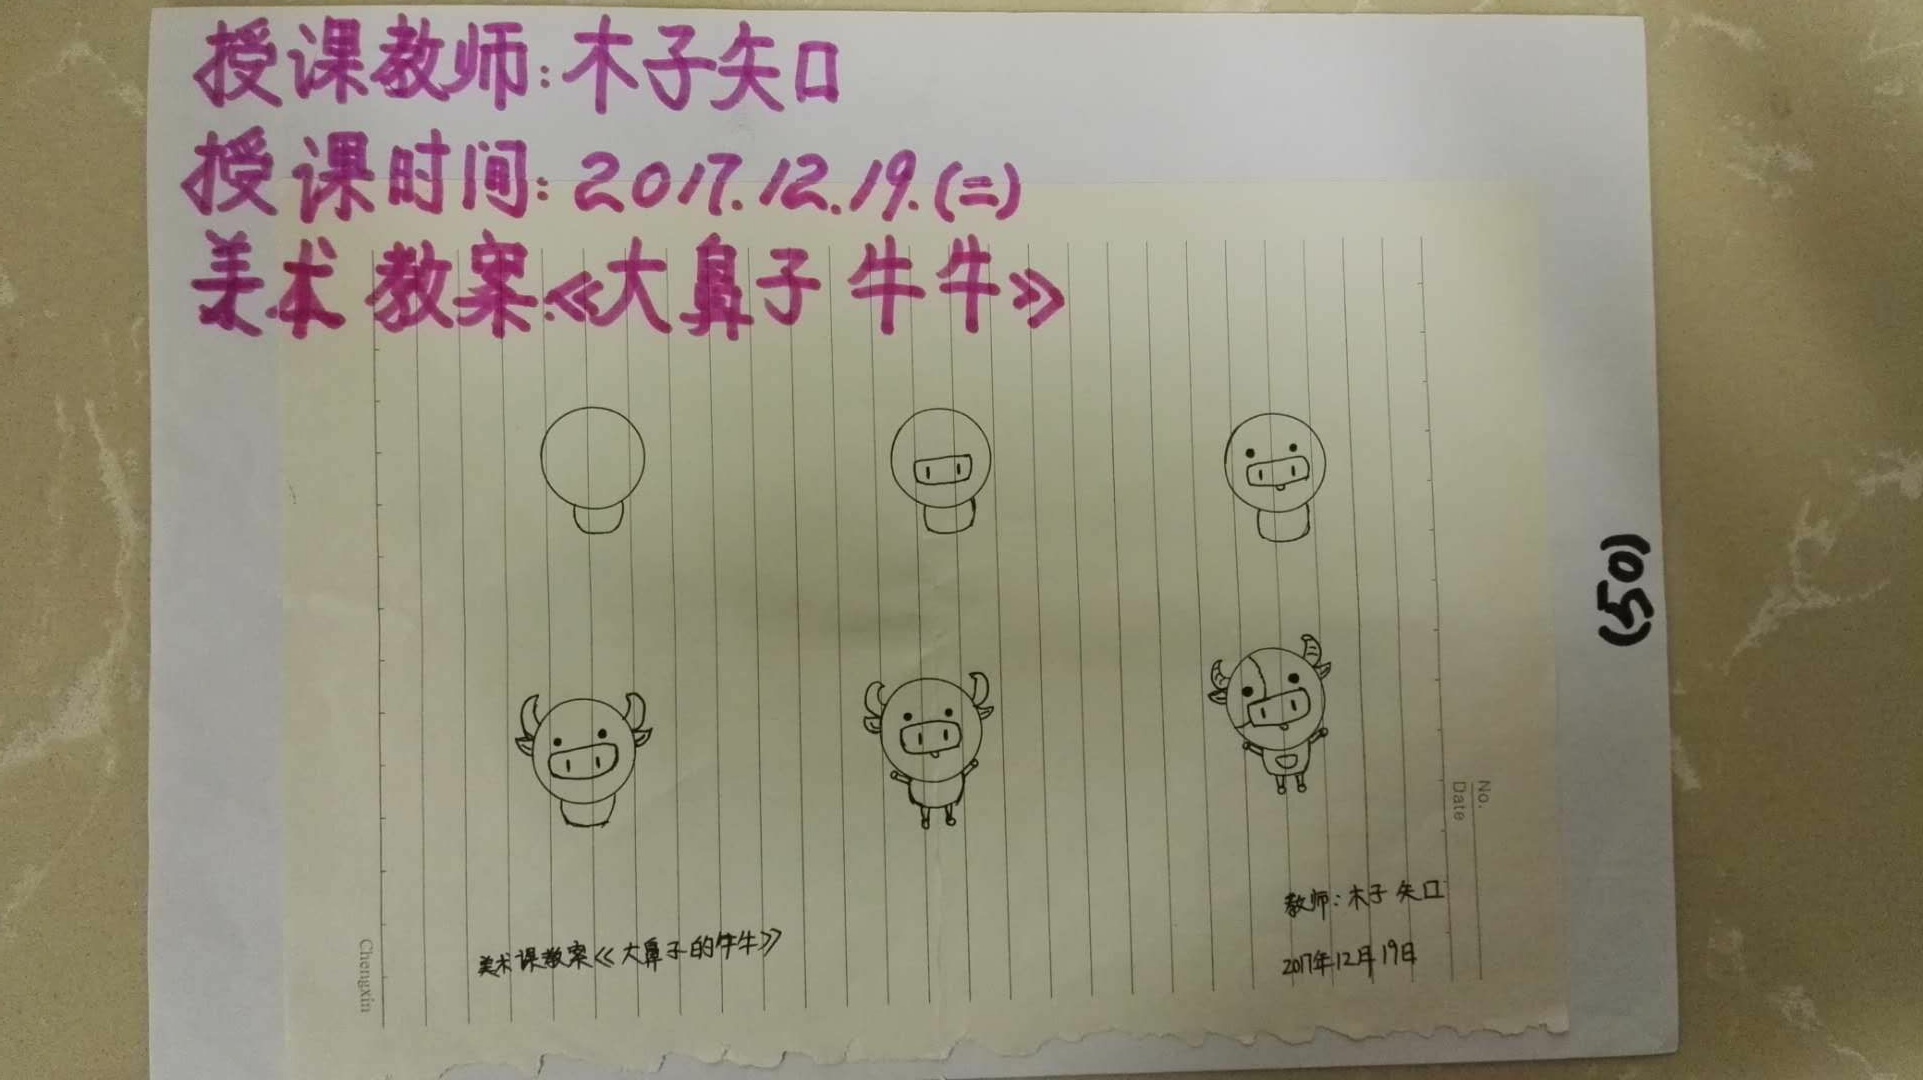 授课教师:木子矢口
授课时间:2017.12.19.(二)
美术教案《大鼻子牛牛》
(50)
No.
Date
教师:木子矢口
美术课教案《大鼻子的牛牛》
2017年12月19日
Chengxin